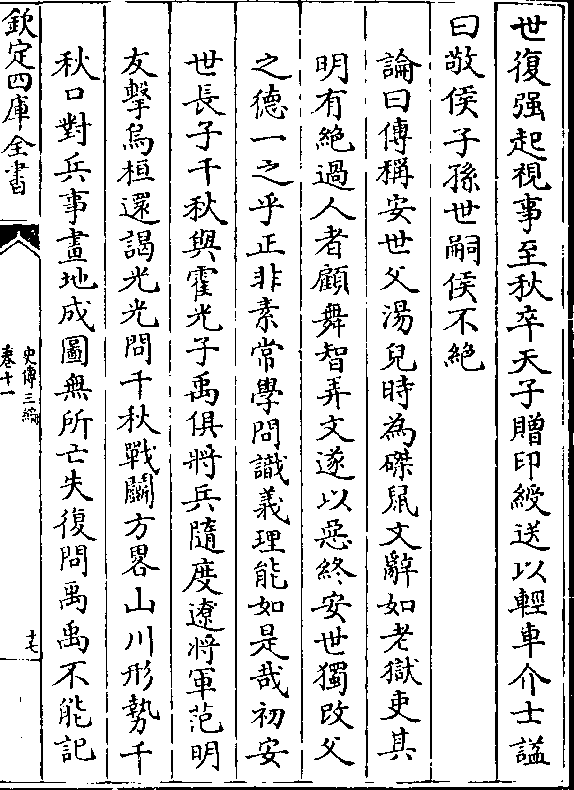 世復强起視事至秋卒天子贈印綬送以輕車介士諡
曰敬侯子孫世嗣侯不絶
論曰傳稱安世父湯兒時為磔鼠文辭如老獄吏其
明有絶過人者顧舞智弄文遂以惡終安世獨改父
之德一之乎正非素常學問識義理能如是哉初安
世長子千秋與霍光子禹俱將兵隨度遼將軍范明
友擊烏桓還謁光光問千秋戰鬭方畧山川形勢千
秋口對兵事畫地成圖無所亡失復問禹禹不能記
欽定四庫全書
史傳三編
卷十一
十七